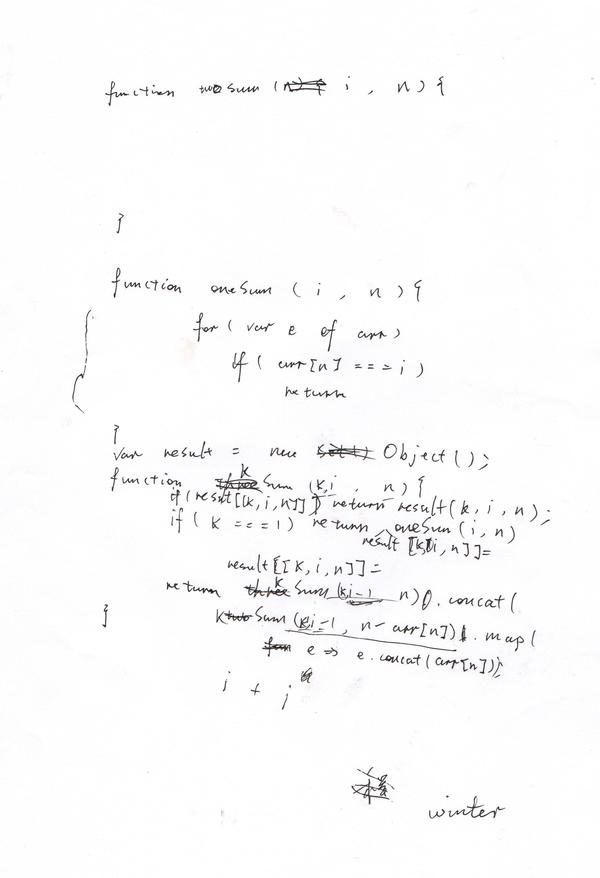 function twoSum ( i , n ) {
}
function oneSum ( i , n ) {
for ( var e of arr )
if ( arr[n] === i )
return
}
var result = new Object();
function kSum (k,i , n) {
if (result[[k,i,n]]) return result(k,i,n);
if ( k === 1) return oneSum (i, n)
result [[k,i,n]]=
result[[k,i,n]]=
return kSum (k,i-1 n)().concat(
kSum (k,i-1, n-arr[n]).map(
e => e.concat(arr[n]));
}
i + j
winter